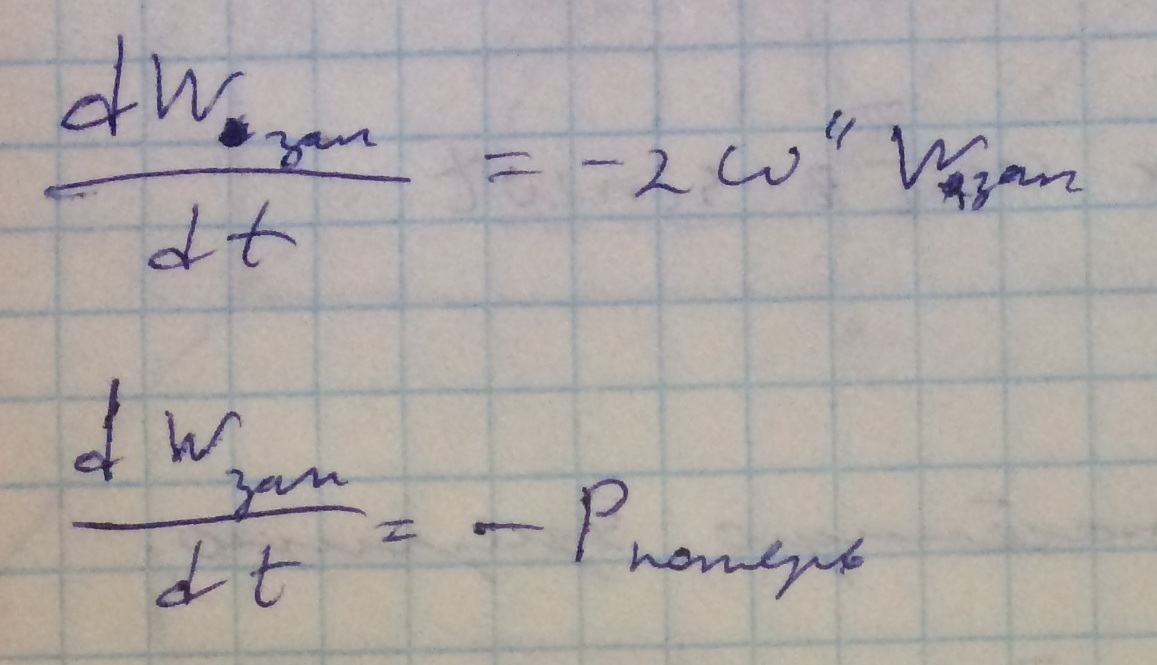 dW зап / dt = -2 ω" W зап
dW зап / dt = - P потерь